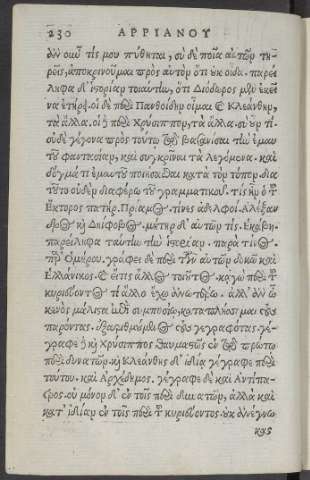 230 ΑΡΡΙΑΝΟΥ
ἂν οὖν τίς μου πύθηται, σὺ δὲ ποῖα αὐτῶν τη-
ρεῖς, ἀποκρινοῦμαι πρὸς αὐτὸν ὅτι οὐκ οἶδα. παρεί-
ληφα δ' ἱστορίαν τοιαύτην, ὅτι Διόδωρος μὲν ἐκεῖ
να ἐτήρει. οἱ δὲ περὶ Πανθοίδην οἶμαι καὶ Κλεάνθην,
τὰ ἄλλα. οἱ ἢ περὶ Χρύσιππον, τὰ ἄλλα. σὺ οὖν τί.
οὐδὲ γέγονα πρὸς τοῦτον τῷ βασανίσαι τὴν ἐμαυ
τοῦ φαντασίαν, καὶ συγκρῖναι τὰ λεγόμενα. καὶ
δόγμά τι ἐμαυτοῦ ποιήσασθαι κατὰ τὸν τόπον. δια
τοῦτο οὐδὲν διαφέρω τοῦ γραμματικοῦ. τίς ἦν ὁ τοῦ
Ἕκτορος πατήρ. Πρίαμος. τίνες ἀδελφοί. Ἀλέξαν
δρος καὶ Δηίφοβος. μήτηρ δ' αὐτῶν τίς. Ἑκάβη.
παρείληφα ταύτην τὴν ἱστορίαν. παρὰ τίνος.
παρ' Ὁμήρου. γράφει δὲ περὶ τῶν αὐτῶν δοκῶ καὶ
Ἑλλάνικος. καὶ εἴτις ἄλλος τοιοῦτος. κἀγὼ περὶ τοῦ
κυριεύοντος τί ἄλλο ἔχω ἀνωτέρω. ἀλλ' ἂν ὦ
κενὸς μάλιστα ἐπὶ συμποσίῳ, καταπλήσσομαι τοὺς
παρόντας. ἐξαριθμούμενος τοὺς γεγραφότας. γέ-
γραφε ἢ καὶ Χρύσιππος θαυμαστῶς ἐν τῷ πρώτῳ
περὶ δυνατῶν. καὶ Κλεάνθης δ' ἰδίᾳ γέγραφε περὶ
τούτου. καὶ Ἀρχέδημος. γέγραφε δὲ καὶ Ἀντίπα-
τρος. οὐ μόνον δ' ἐν τοῖς περὶ δυνατῶν, ἀλλὰ καὶ
κατ' ἰδίαν ἐν τοῖς περὶ τοῦ κυριεύοντος. οὐκ ἀνέγνω
κας